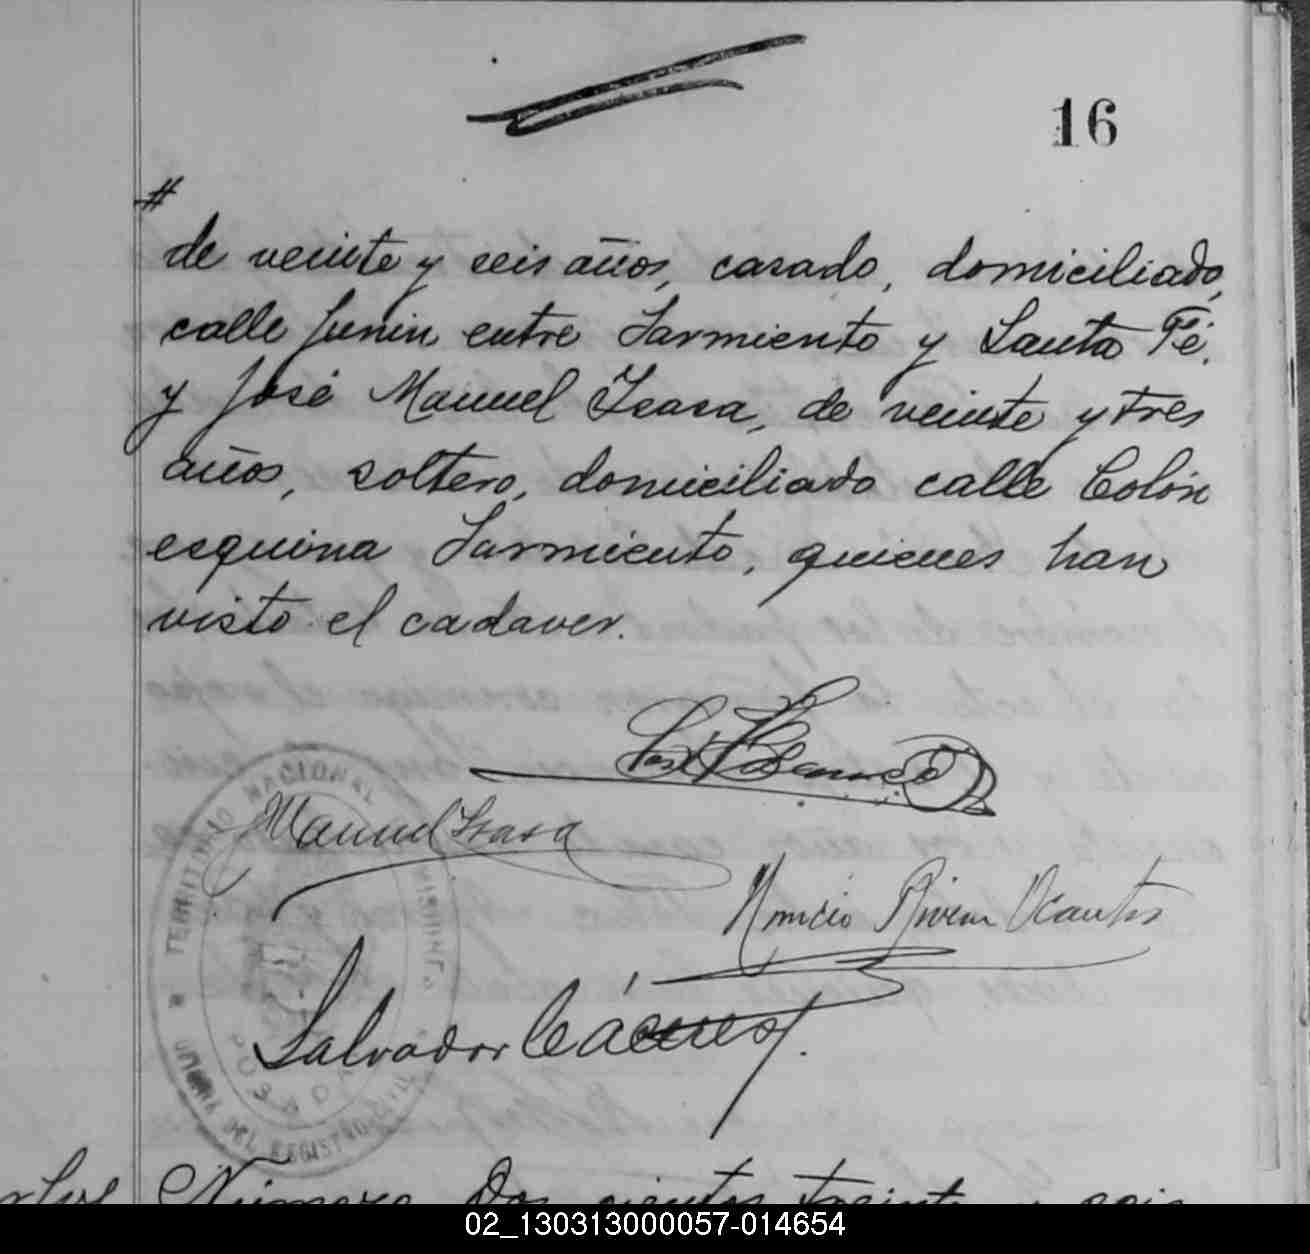 16
#
de veinte y seis años, casado, domiciliado,
calle Junin entre Sarmiento y Santa Fé,
y José Manuel Isasa, de veinte y tres
años, soltero, domiciliado calle Colón
esquina Sarmiento, quienes han
visto el cadaver.
Manuel Isasa
Rivera Ocantos
Salvador Cáceres
TERRITORIO NACIONAL MISIONES
POSADAS
OFICINA DEL REGISTRO CIVIL
Número Dos cientos treinta y seis
02_130313000057-014654